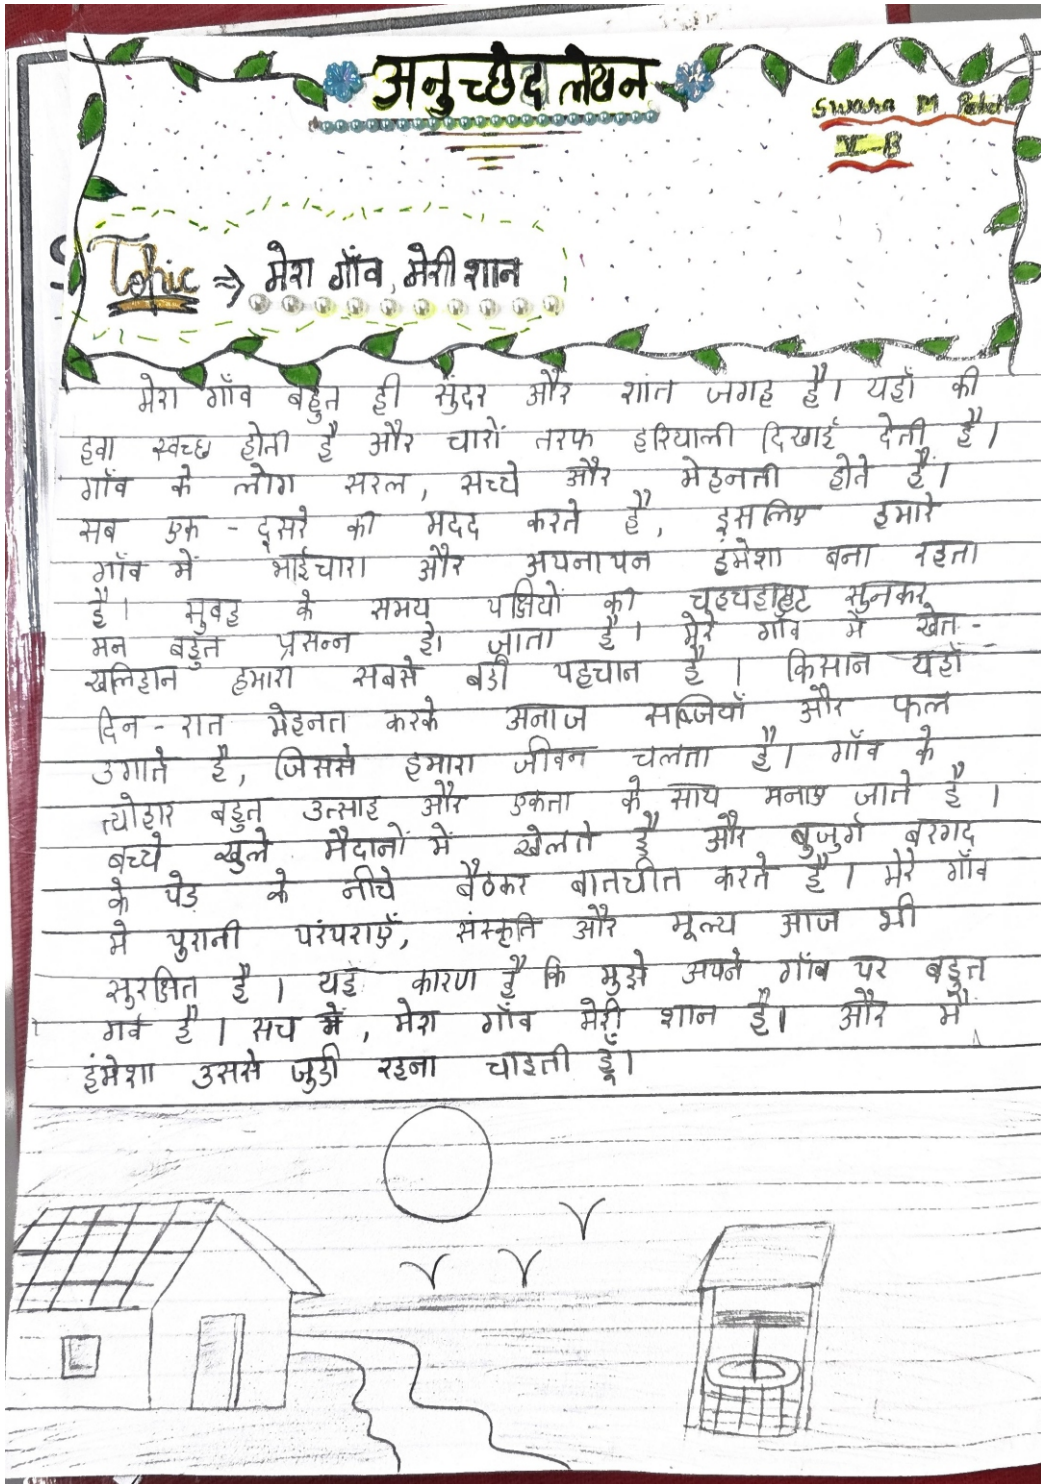 अनुच्छेद लेखन
Swara M
V-B
Topic ⇒ मेरा गाँव, मेरी शान
मेरा गाँव बहुत ही सुंदर और शांत जगह है। यहाँ की
हवा स्वच्छ होती है और चारों तरफ हरियाली दिखाई देती है।
गाँव के लोग सरल, सच्चे और मेहनती होते हैं।
सब एक - दूसरे की मदद करते हैं, इसलिए हमारे
गाँव में भाईचारा और अपनापन हमेशा बना रहता
है। सुबह के समय पक्षियों की चहचहाहट सुनकर
मन बहुत प्रसन्न हो जाता है। मेरे गाँव में खेत-
खलिहान हमारी सबसे बड़ी पहचान है। किसान यहाँ
दिन - रात मेहनत करके अनाज सब्जियाँ और फल
उगाते है, जिससे हमारा जीवन चलता है। गाँव के
त्योहार बहुत उत्साह और एकता के साथ मनाए जाते है।
बच्चे खुले मैदानों में खेलते है और बुजुर्ग बरगद
के पेड़ के नीचे बैठकर बातचीत करते है। मेरे गाँव
मे पुरानी परंपराएँ, संस्कृति और मूल्य आज भी
सुरक्षित है। यह कारण है कि मुझे अपने गाँव पर बहुत
गर्व है। सच में, मेरा गाँव मेरी शान है। और मै
हंमेशा उससे जुड़ी रहना चाहती हूँ।